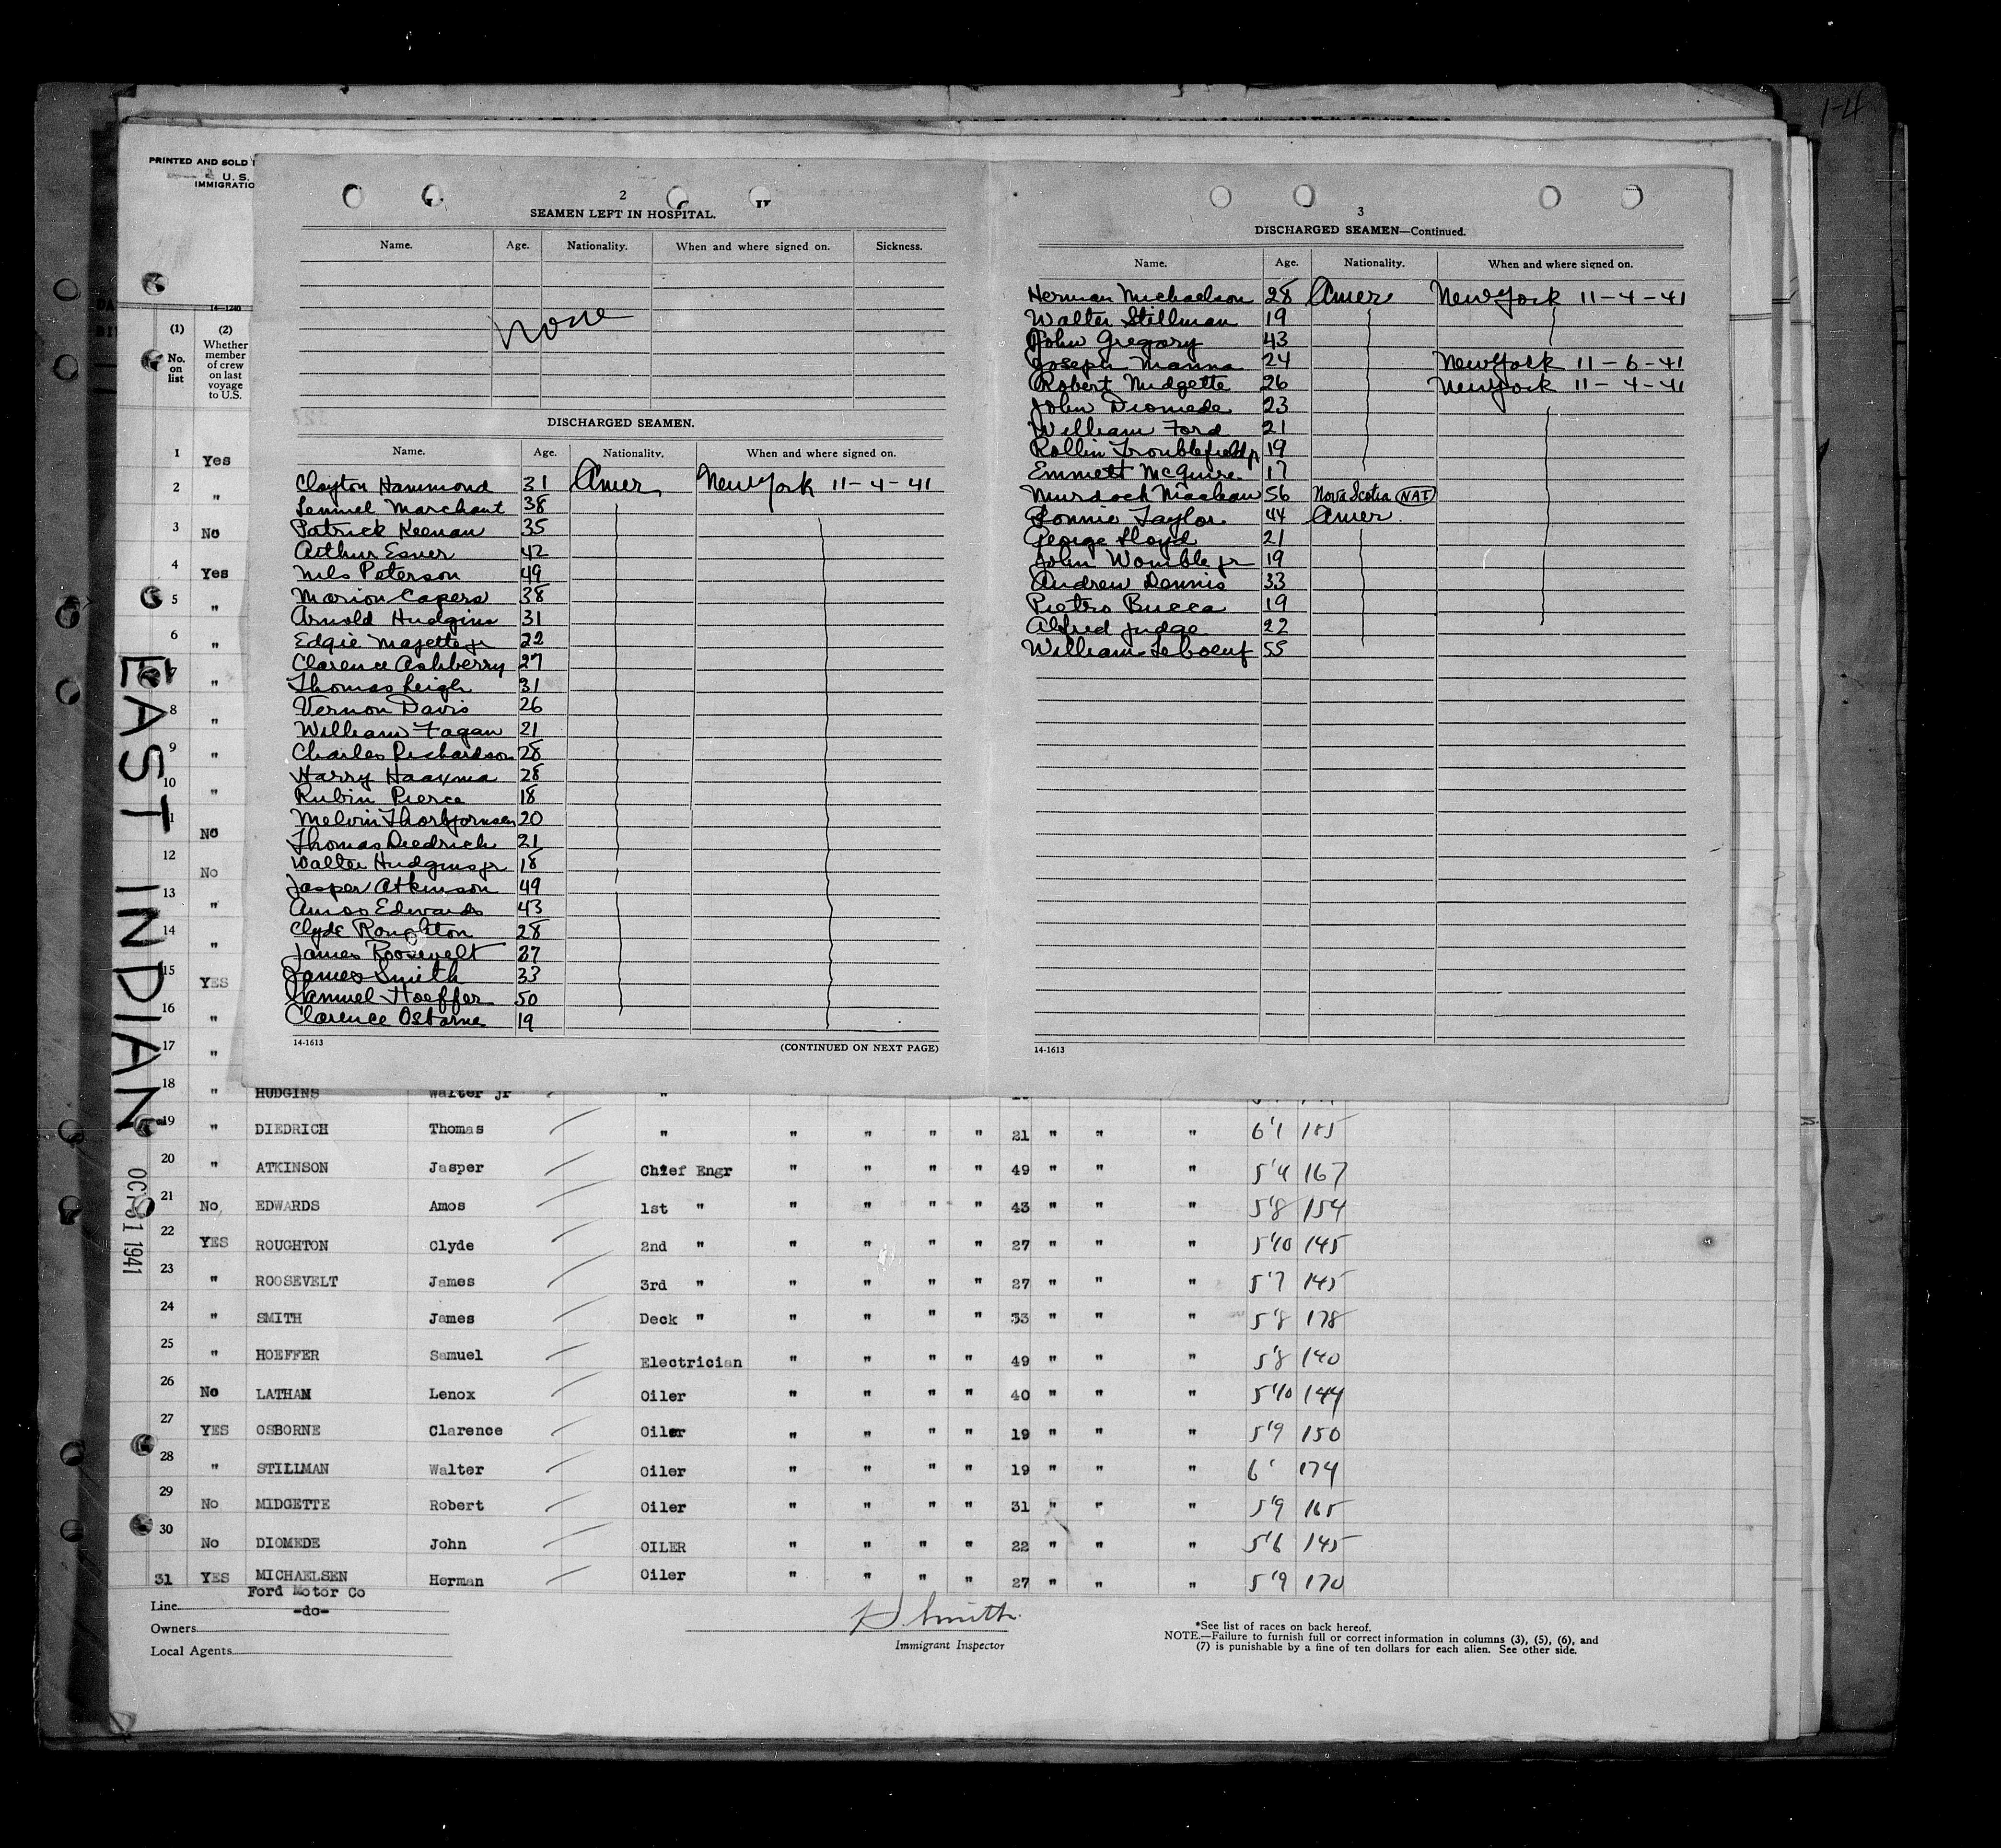 1-4
PRINTED AND SOLD
U. S.
IMMIGRATIO
14-1240
(1) (2)
No. on list
Whether member of crew on last voyage to U.S.
EAST INDIAN
OCT 31 1941
2
SEAMEN LEFT IN HOSPITAL.
Name. Age. Nationality. When and where signed on. Sickness.
None
DISCHARGED SEAMEN.
Name. Age. Nationality. When and where signed on.
Clayton Hammond 31 Amer New York 11-4-41
Lemuel Marchant 38
Patrick Keenan 35
Arthur Esner 42
Nils Peterson 49
Marion Capers 38
Arnold Hudgins 31
Edgie Majette jr 22
Clarence Ashberry 27
Thomas Leigh 31
Vernon Davis 26
William Fagan 21
Charles Richardson 28
Harry Haaxma 28
Rubin Pierce 18
Melvin Thorbjornsen 20
Thomas Diedrich 21
Walter Hudgins jr 18
Jasper Atkinson 49
Amos Edwards 43
Clyde Roughton 28
James Roosevelt 27
James Smith 33
Samuel Hoeffer 50
Clarence Osborne 19
14-1613 (CONTINUED ON NEXT PAGE)
3
DISCHARGED SEAMEN—Continued.
Name. Age. Nationality. When and where signed on.
Herman Michaelson 28 Amer New York 11-4-41
Walter Stillman 19
John Gregory 43
Joseph Manna 24 New York 11-6-41
Robert Midgette 26 New York 11-4-41
John Diomede 23
William Ford 21
Rollin Troublefield jr 19
Emmett McGuire 17
Murdoch Maclean 56 Nova Scotia NAT
Lonnie Taylor 44 Amer
George Lloyd 21
John Womble jr 19
Andrew Dennis 33
Pietro Bucca 19
Alfred Judge 22
William Leboeuf 55
14-1613
1 Yes
2 "
3 No
4 Yes
5 "
6 "
7 "
8 "
9 "
10 "
1 NO
12 No
13 "
14 "
15 YES
16 "
17 "
18 " HUDGINS Walter jr "
19 " DIEDRICH Thomas " " " " " 21 " " " 6'1 185
20 " ATKINSON Jasper Chief Engr " " " " 49 " " " 5'4 167
21 No, EDWARDS Amos 1st " " " " " 43 " " " 5'8 154
22 YES ROUGHTON Clyde 2nd " " " " " 27 " " " 5'10 145
23 " ROOSEVELT James 3rd " " " " " 27 " " " 5'7 145
24 " SMITH James Deck " " " " " 33 " " " 5'8 178
25 " HOEFFER Samuel Electrician " " " " 49 " " " 5'8 140
26 No LATHAM Lenox Oiler " " " " 40 " " " 5'10 144
27 YES OSBORNE Clarence Oiler " " " " 19 " " " 5'9 150
28 " STILLMAN Walter Oiler " " " " 19 " " " 6' 174
29 No MIDGETTE Robert Oiler " " " " 31 " " " 5'9 165
30 No DIOMEDE John OILER " " " " 22 " " " 5'6 145
31 YES MICHAELSEN Herman Oiler " " " " 27 " " " 5'9 170
Line Ford Motor Co
Owners -do-
Local Agents
H Smith
Immigrant Inspector
*See list of races on back hereof.
NOTE.—Failure to furnish full or correct information in columns (3), (5), (6), and
(7) is punishable by a fine of ten dollars for each alien. See other side.